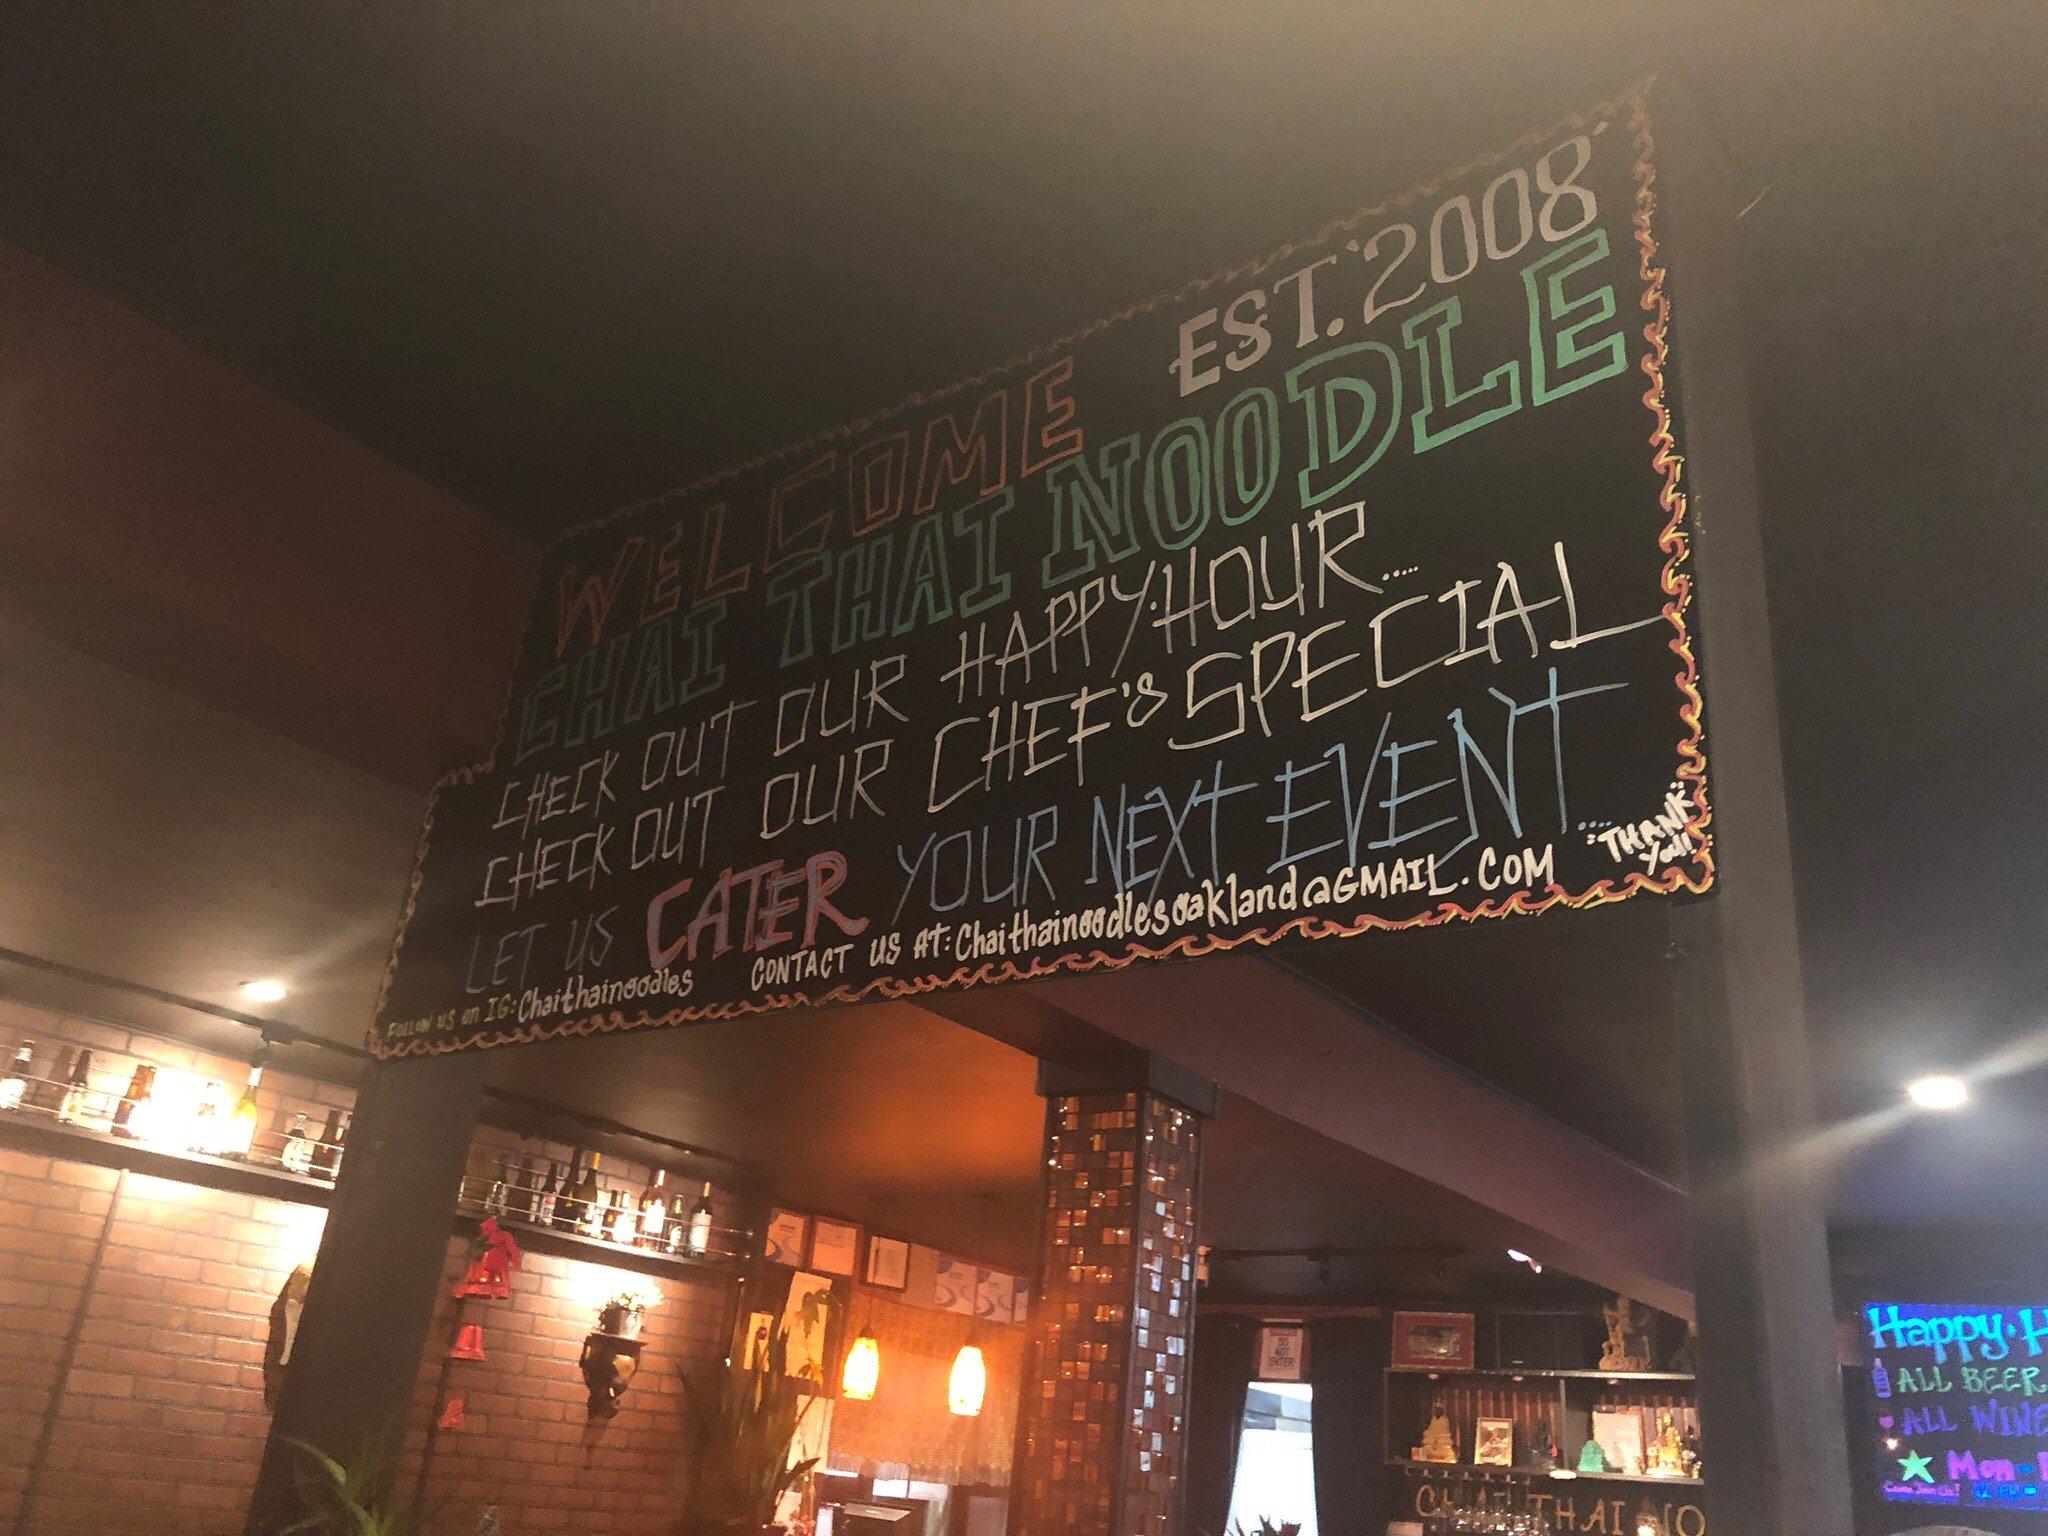 WELCOME EST. '2008'
CHAI THAI NOODLE
CHECK OUT OUR HAPPY·HOUR.....
CHECK OUT OUR CHEF'S SPECIAL
LET US CATER YOUR NEXT EVENT....
FOLLOW US on IG: Chaithainoodles
CONTACT US AT: Chaithainoodlesoakland@GMAIL.COM
"THANK YOU!!"
DO NOT ENTER!
CHAI THAI NO
Happy·H
ALL BEER
ALL WINE
Mon-
Come Join Us!